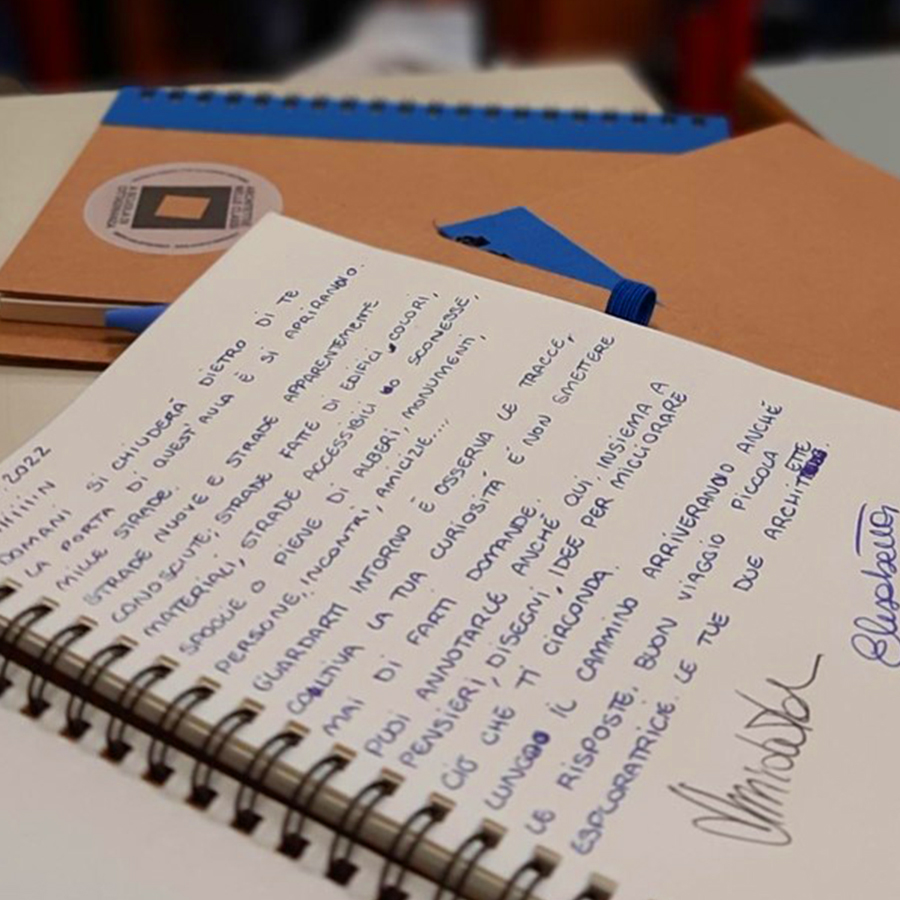 2022
DOMANI SI CHIUDERÀ DIETRO DI TE
LA PORTA DI QUEST'AULA E SI APRIRANNO
MILLE STRADE.
STRADE NUOVE E STRADE APPARENTEMENTE
CONOSCIUTE, STRADE FATTE DI EDIFICI, COLORI,
MATERIALI, STRADE ACCESSIBILI O SCONESSE,
SPOGLIE O PIENE DI ALBERI, MONUMENTI,
PERSONE, INCONTRI, AMICIZIE....
GUARDARTI INTORNO È OSSERVA LE TRACCE,
COLTIVA LA TUA CURIOSITÁ E NON SMETTERE
MAI DI FARTI DOMANDE.
PUOI ANNOTARLE ANCHE QUI, INSIEMA A
PENSIERI, DISEGNI, IDEE PER MIGLIORARE
CIÒ CHE TI CIRCONDA.
LUNGO IL CAMMINO ARRIVERANNO ANCHE
LE RISPOSTE. BUON VIAGGIO PICCOLA
ESPLORATRICE. LE TUE DUE ARCHITETE
Elisabetta
ARCHITETTI
NELLE CLASSI
A SCUOLA DI
CITTADINANZA